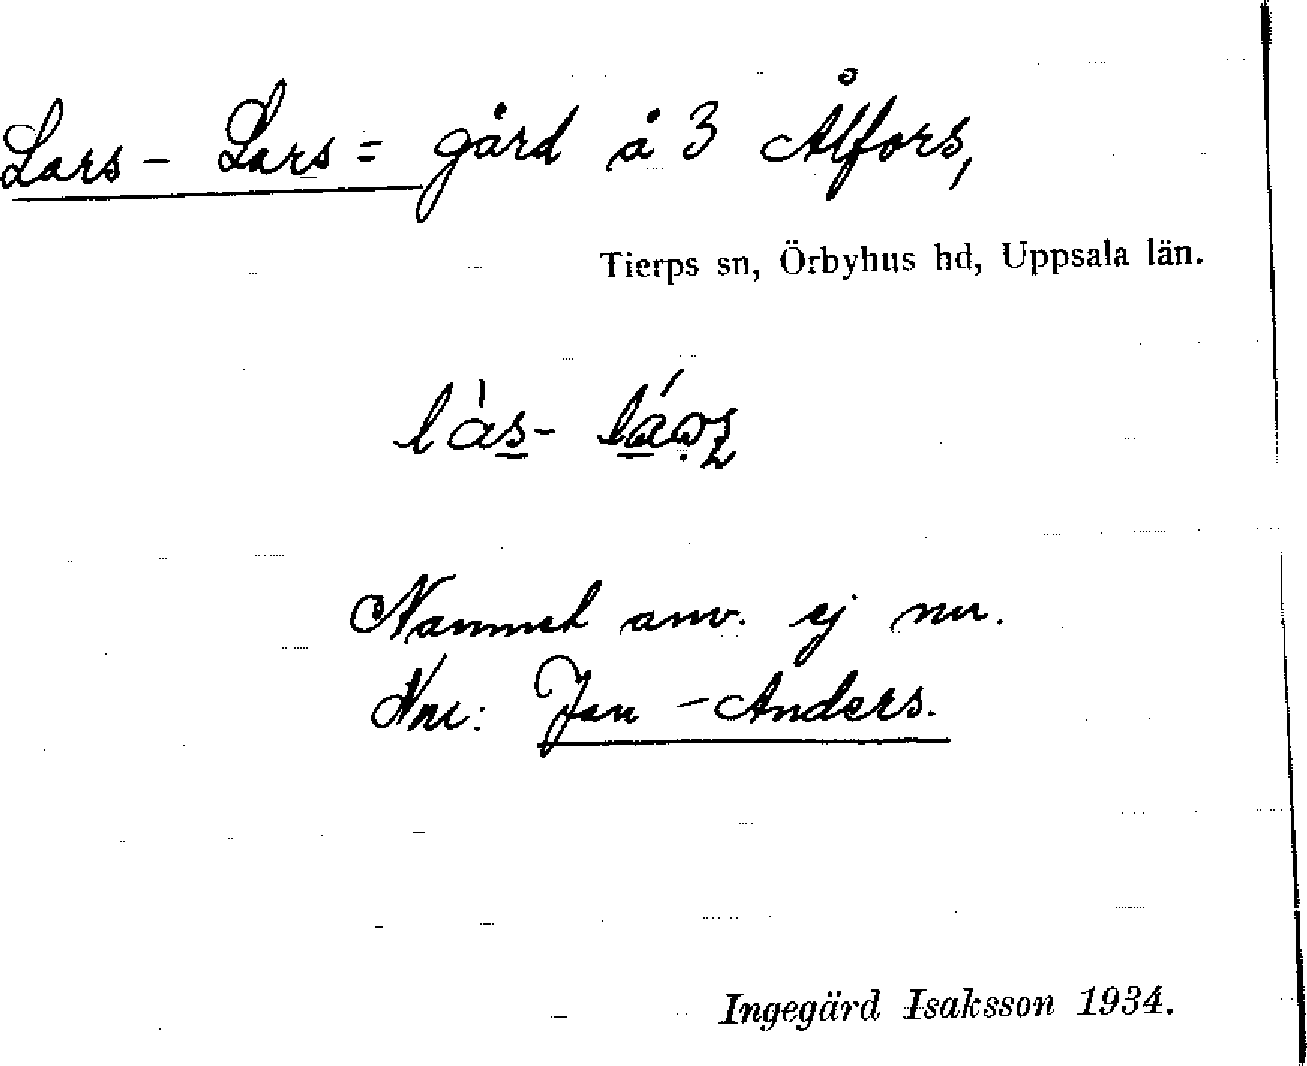 Lars - Lars = gård å 3 Ålfors,
Tierps sn, Örbyhus hd, Uppsala län.
Namnet anv. ej nu.
Nu: Jan - Anders.
Ingegärd Isaksson 1934.